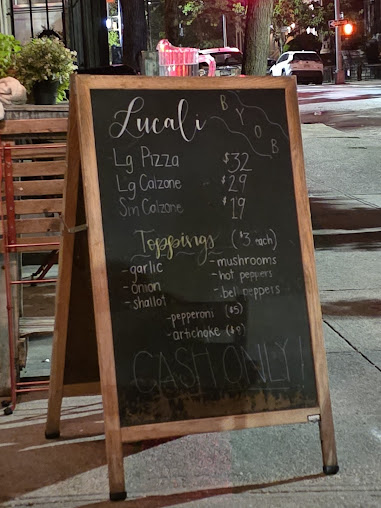 Lucali
BYOB
Lg Pizza $32
Lg Calzone $29
Sm Calzone $19
Toppings ($3 each)
-garlic -mushrooms
-onion -hot peppers
-shallot -bell peppers
-pepperoni ($5)
-artichoke ($9)
CASH ONLY!